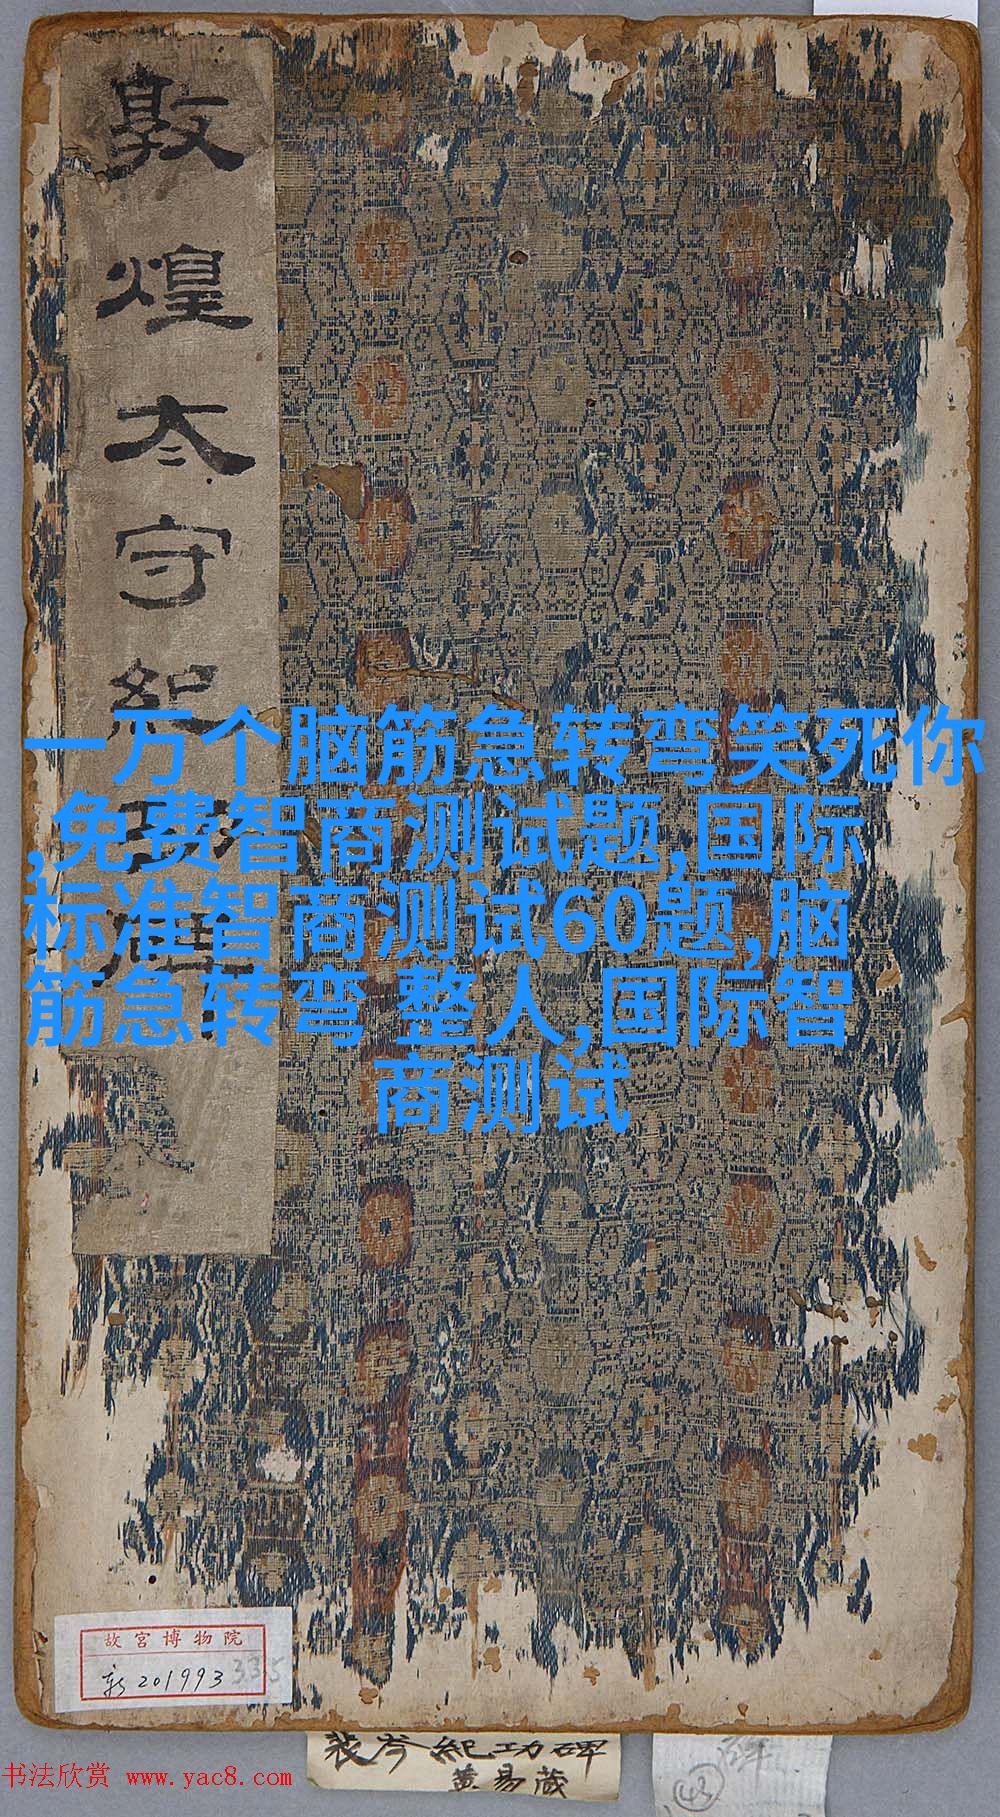 敦煌太守紀
一万个脑筋急转弯笑死你
,免费智商测试题,国际
标准智商测试60题,脑
筋急转弯 整人,国际智
商测试
故宫博物院
新201993
335
裴岑紀功碑
黄易藏
43
书法欣赏 www.yac8.com